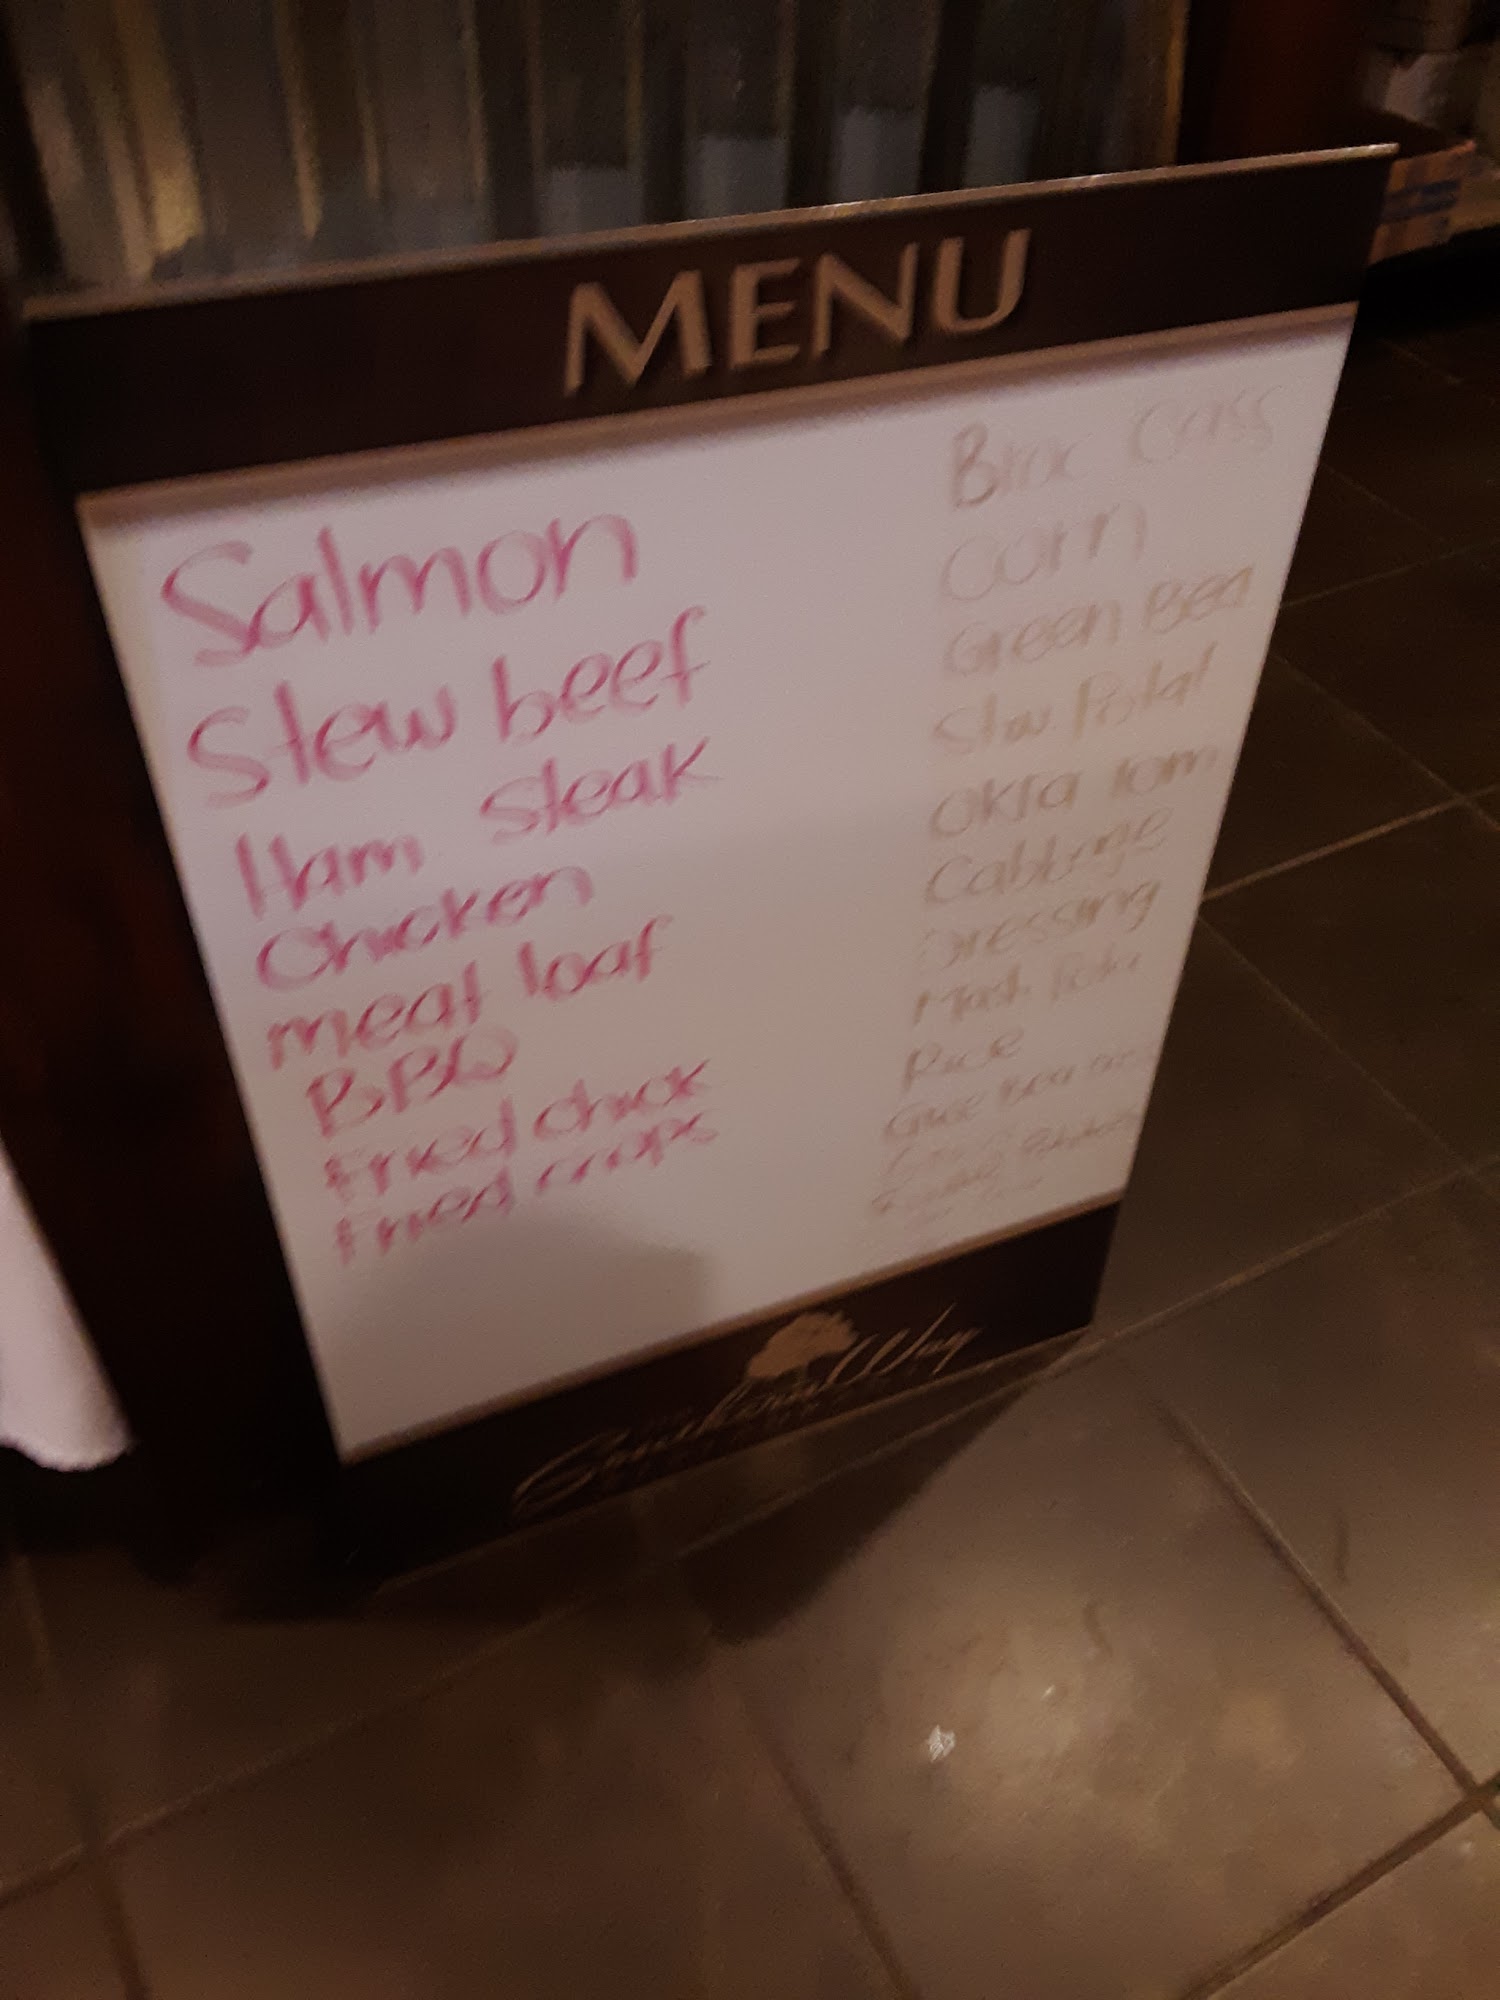 MENU
Salmon
Stew beef
Ham steak
Chicken
meat loaf
BBQ
Fried chick
Fried crops
Broc Cass
Corn
Green Bea
Okra Tom
Cabbage
Dressing
Mash Pota
Rice
Way